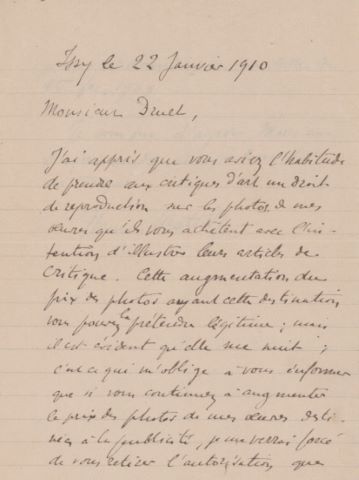 Issy le 22 Janvier 1910
Monsieur Druet,
J'ai appris que vous aviez l'habitude
de prendre aux critiques d'art un droit
de reproduction sur les photos de mes
œuvres qu'ils vous achètent avec l'in-
tention d'illustrer leurs articles de
critique. Cette augmentation du
prix des photos ayant cette destination
vous pouvez la prétendre légitime ; mais
il est évident qu'elle me nuit ;
c'est ce qui m'oblige à vous informer
que si vous continuez à augmenter
le prix des photos de mes œuvres desti-
nées à la publicité, je me verrai forcé
de vous retirer l'autorisation que